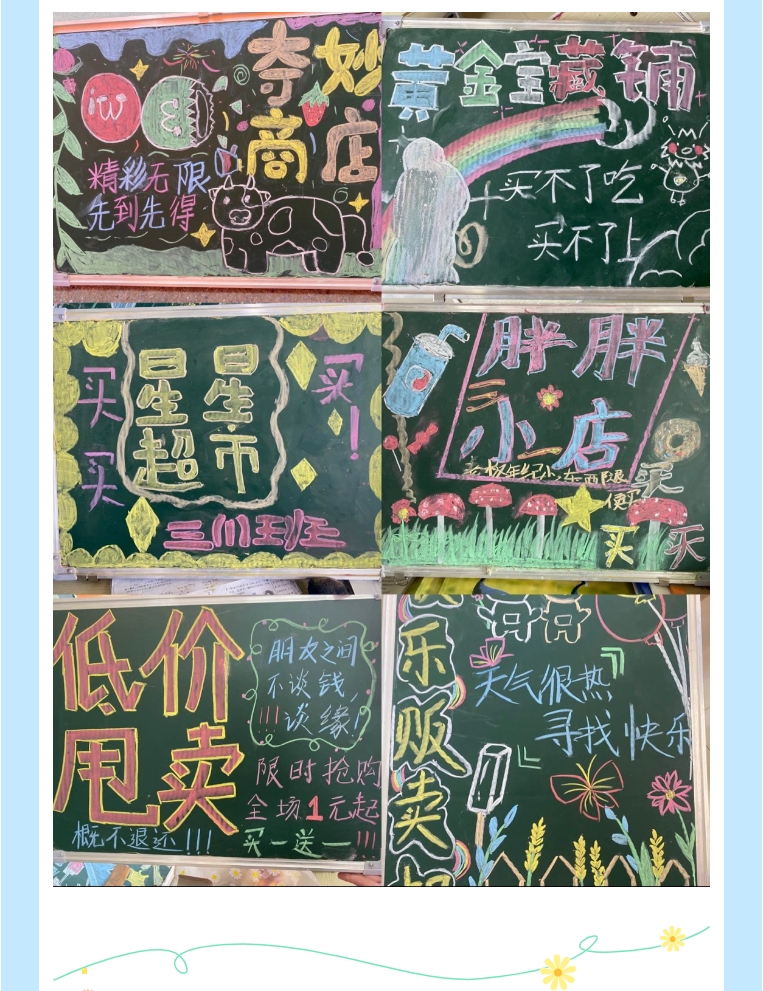 奇妙
商店
精彩无限
先到先得
黄金宝藏铺
买不了吃
买不了上
星星
超市
买
买
买！
三(1)班
胖胖
小店
买
买
买
低价
甩卖
概不退还!!!
朋友之间
不谈钱,
!!!谈缘!
限时抢购
全场1元起
买一送一!!!
乐
贩
卖
天气很热
寻找快乐